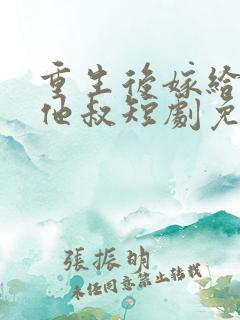 重生後嫁給
他叔短劇免
張振明
未經同意禁止轉載